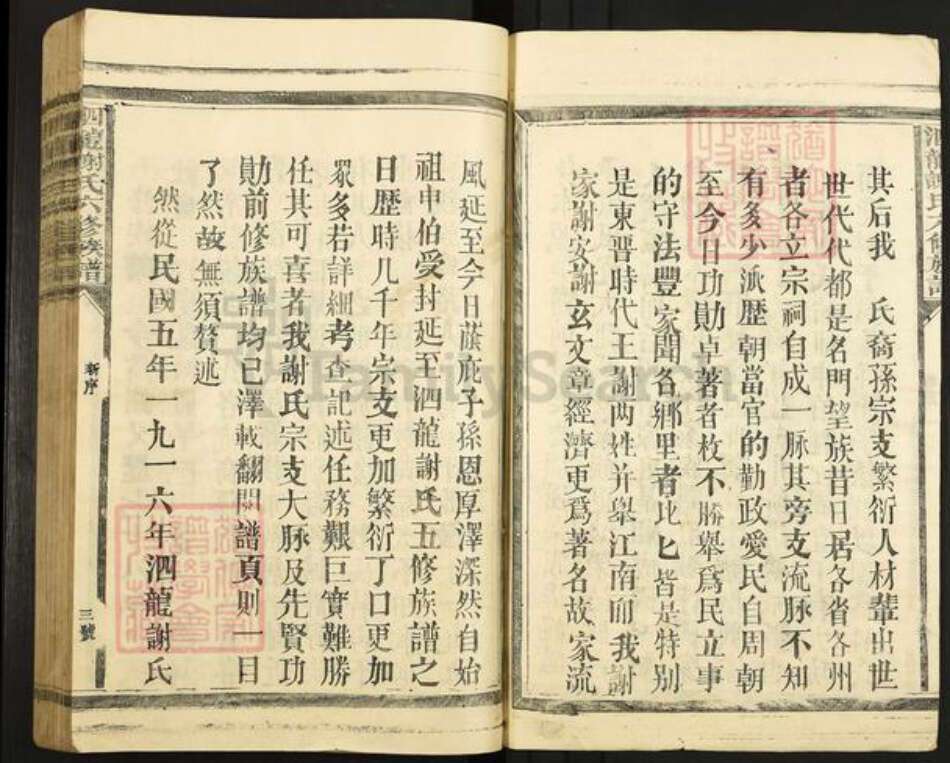 其后我　氏裔孫宗支繁衍人材輩出世
世代代都是名門望族昔日居各省各州
者各立宗祠自成一脉其旁支流脉不知
有多少派歴朝當官的勤政愛民自周朝
至今日功勛卓著者枚不勝舉爲民立事
的守法豐家聞各鄉里者比匕皆是特别
是東晋時代王謝两姓并舉江南而我謝
家謝安謝玄文章經濟更爲著名故家流
風延至今日蔭庇子孫恩厚澤深然自始
祖申伯受封延至泗龍謝氏五修族譜之
日歴時几千年宗支更加繁衍丁口更加
眾多若詳細考查記述任務艱巨實難勝
任其可喜者我謝氏宗支大脉及先賢功
勛前修族譜均已澤載翻閱譜頁則一目
了然故無須贅述
然從民國五年一九一六年泗龍謝氏
泗龍謝氏六修族譜
新序
三號
FamilySearch